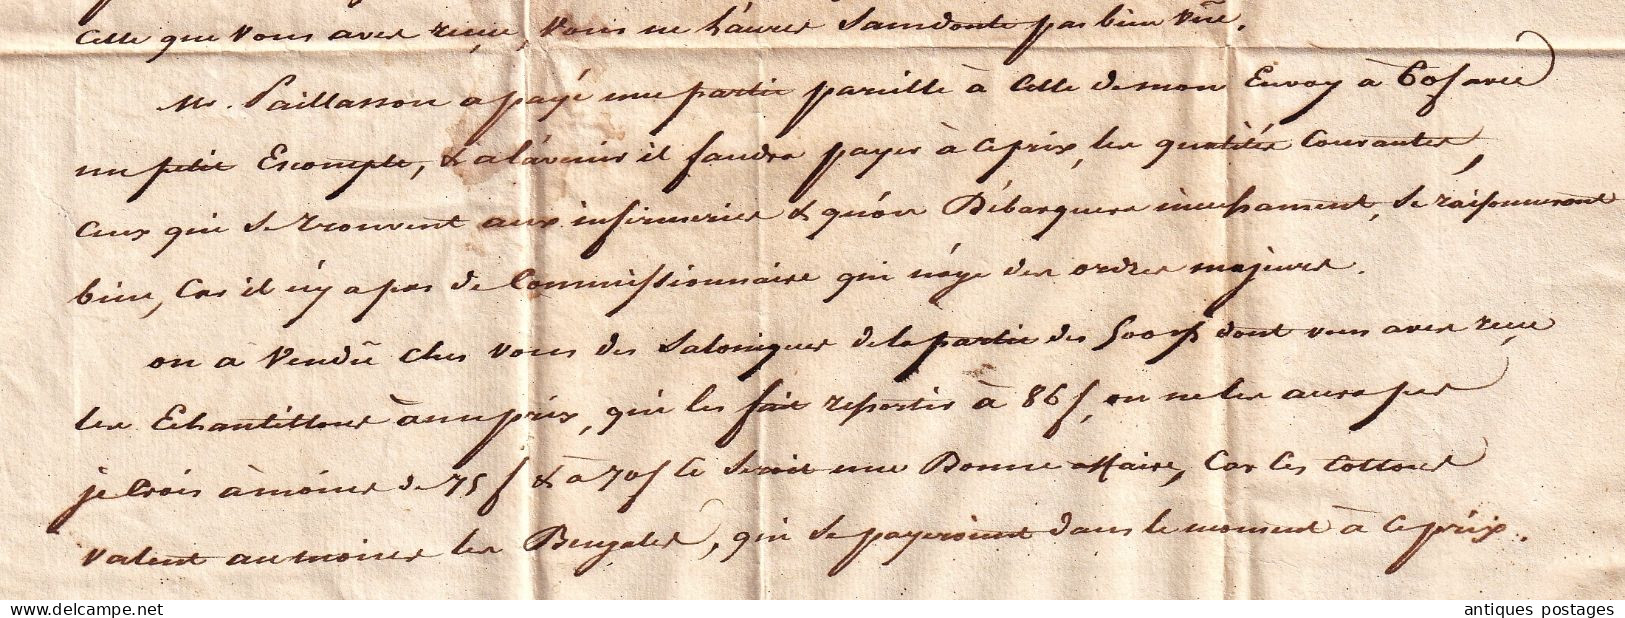 Celle que vous avez reçue, vous ne l'aurez sans doute pas bien vüe.
Mr. Paillasson a payé une partie pareille à celle de mon Envoy à 60f avec
un petit Escompte, & a l'avenir il faudra payer à ce prix, les qualités Courantes,
Ceux qui se trouvent aux infirmeries & qu'on Débarquera incessament, se raisonneront
bien, Car il n'y a pas de Commissionnaire qui n'aye des ordres majeurs.
on à Vendû chez vous des Saloniques de la partie des 500 dont vous avez reçu
les Echantillons à un prix, qui les fait ressortir à 86f, on ne les aura pas
je Crois à moins de 75f & à 70f Ce seroit une Bonne affaire, Car les Cottons
valent au moins les Bengales, qui se payeroient dans le moment à ce prix.
antiques postages